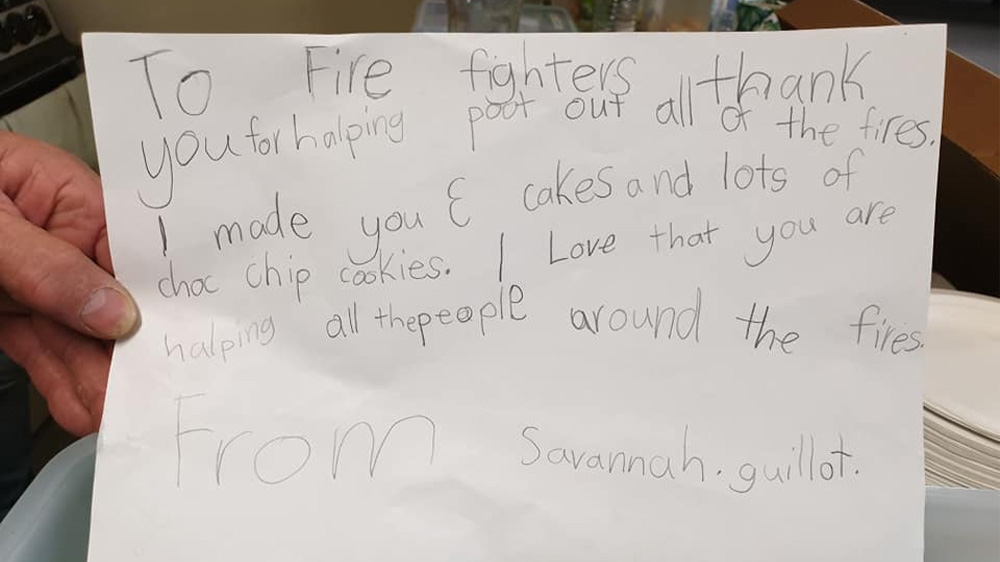 To Fire fighters thank
you for halping poot out all of the fires.
I made you 3 cakes and lots of
choc chip cookies. I Love that you are
halping all the people around the fires.
From Savannah. guillot.